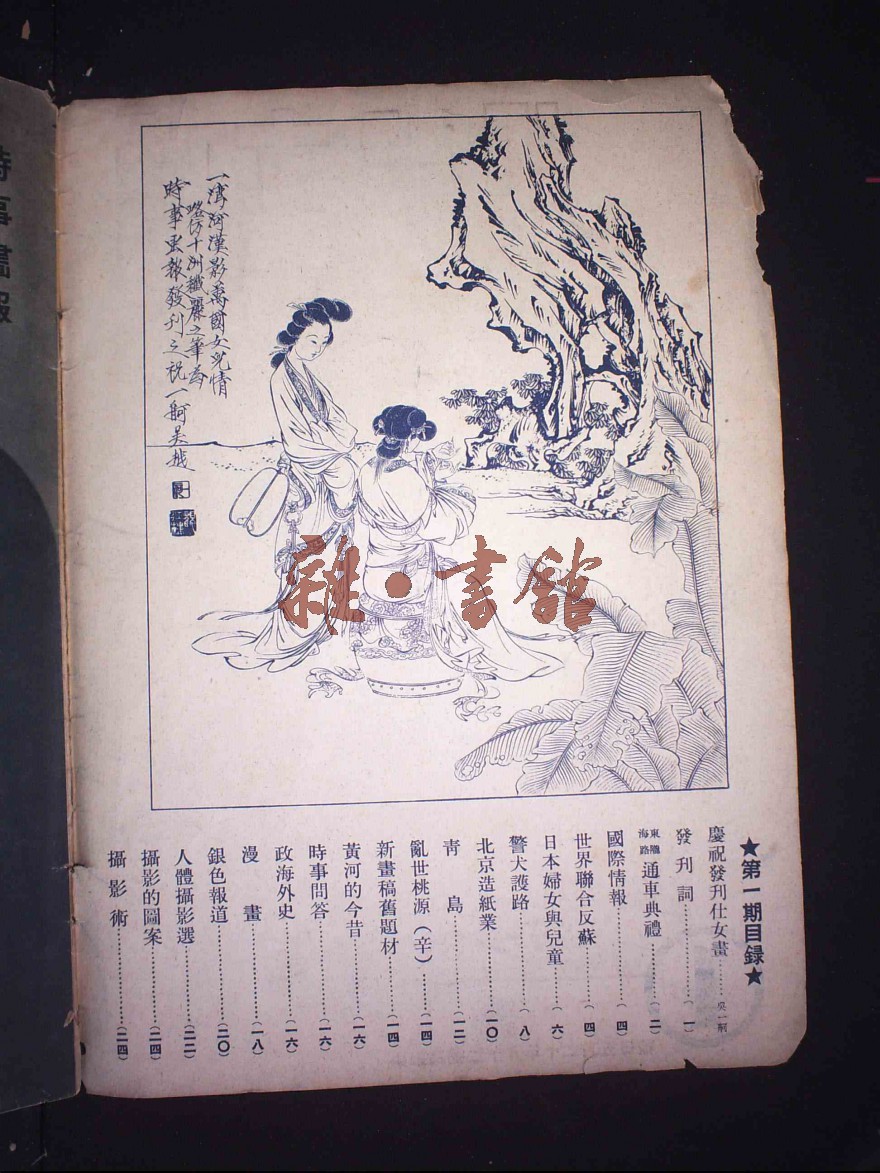 時事畫報
一灣河漢影萬國女兒情
略仿十洲纖麗之筆為
時事畫報發刊之祝一舸吳越
雜·書館
★第一期目錄★
慶祝發刊仕女畫………吳一舸
發刊詞………(一)
東隴海路通車典禮………(二)
國際情報………(四)
世界聯合反蘇………(四)
日本婦女與兒童………(六)
警犬護路………(八)
北京造紙業………(一〇)
青島………(一二)
亂世桃源(辛)………(一四)
新畫稿舊題材………(一四)
黃河的今昔………(一六)
時事問答………(一六)
政海外史………(一六)
漫畫………(一八)
銀色報道………(二〇)
人體攝影選………(二二)
攝影的圖案………(二四)
攝影術………(二四)